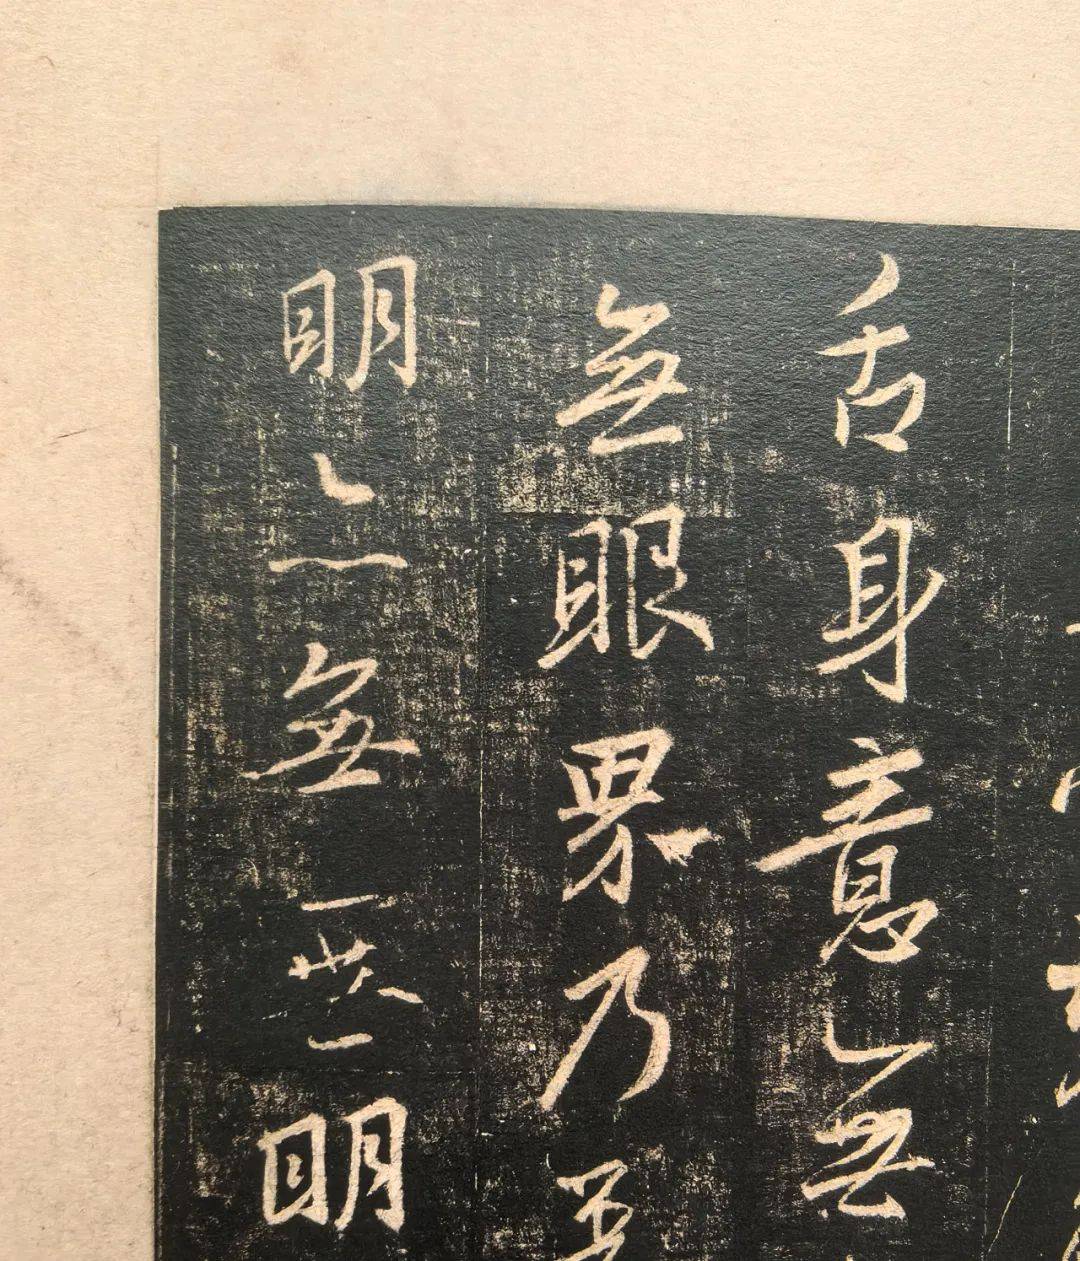 舌身意無
無眼界乃至
明亦無無明